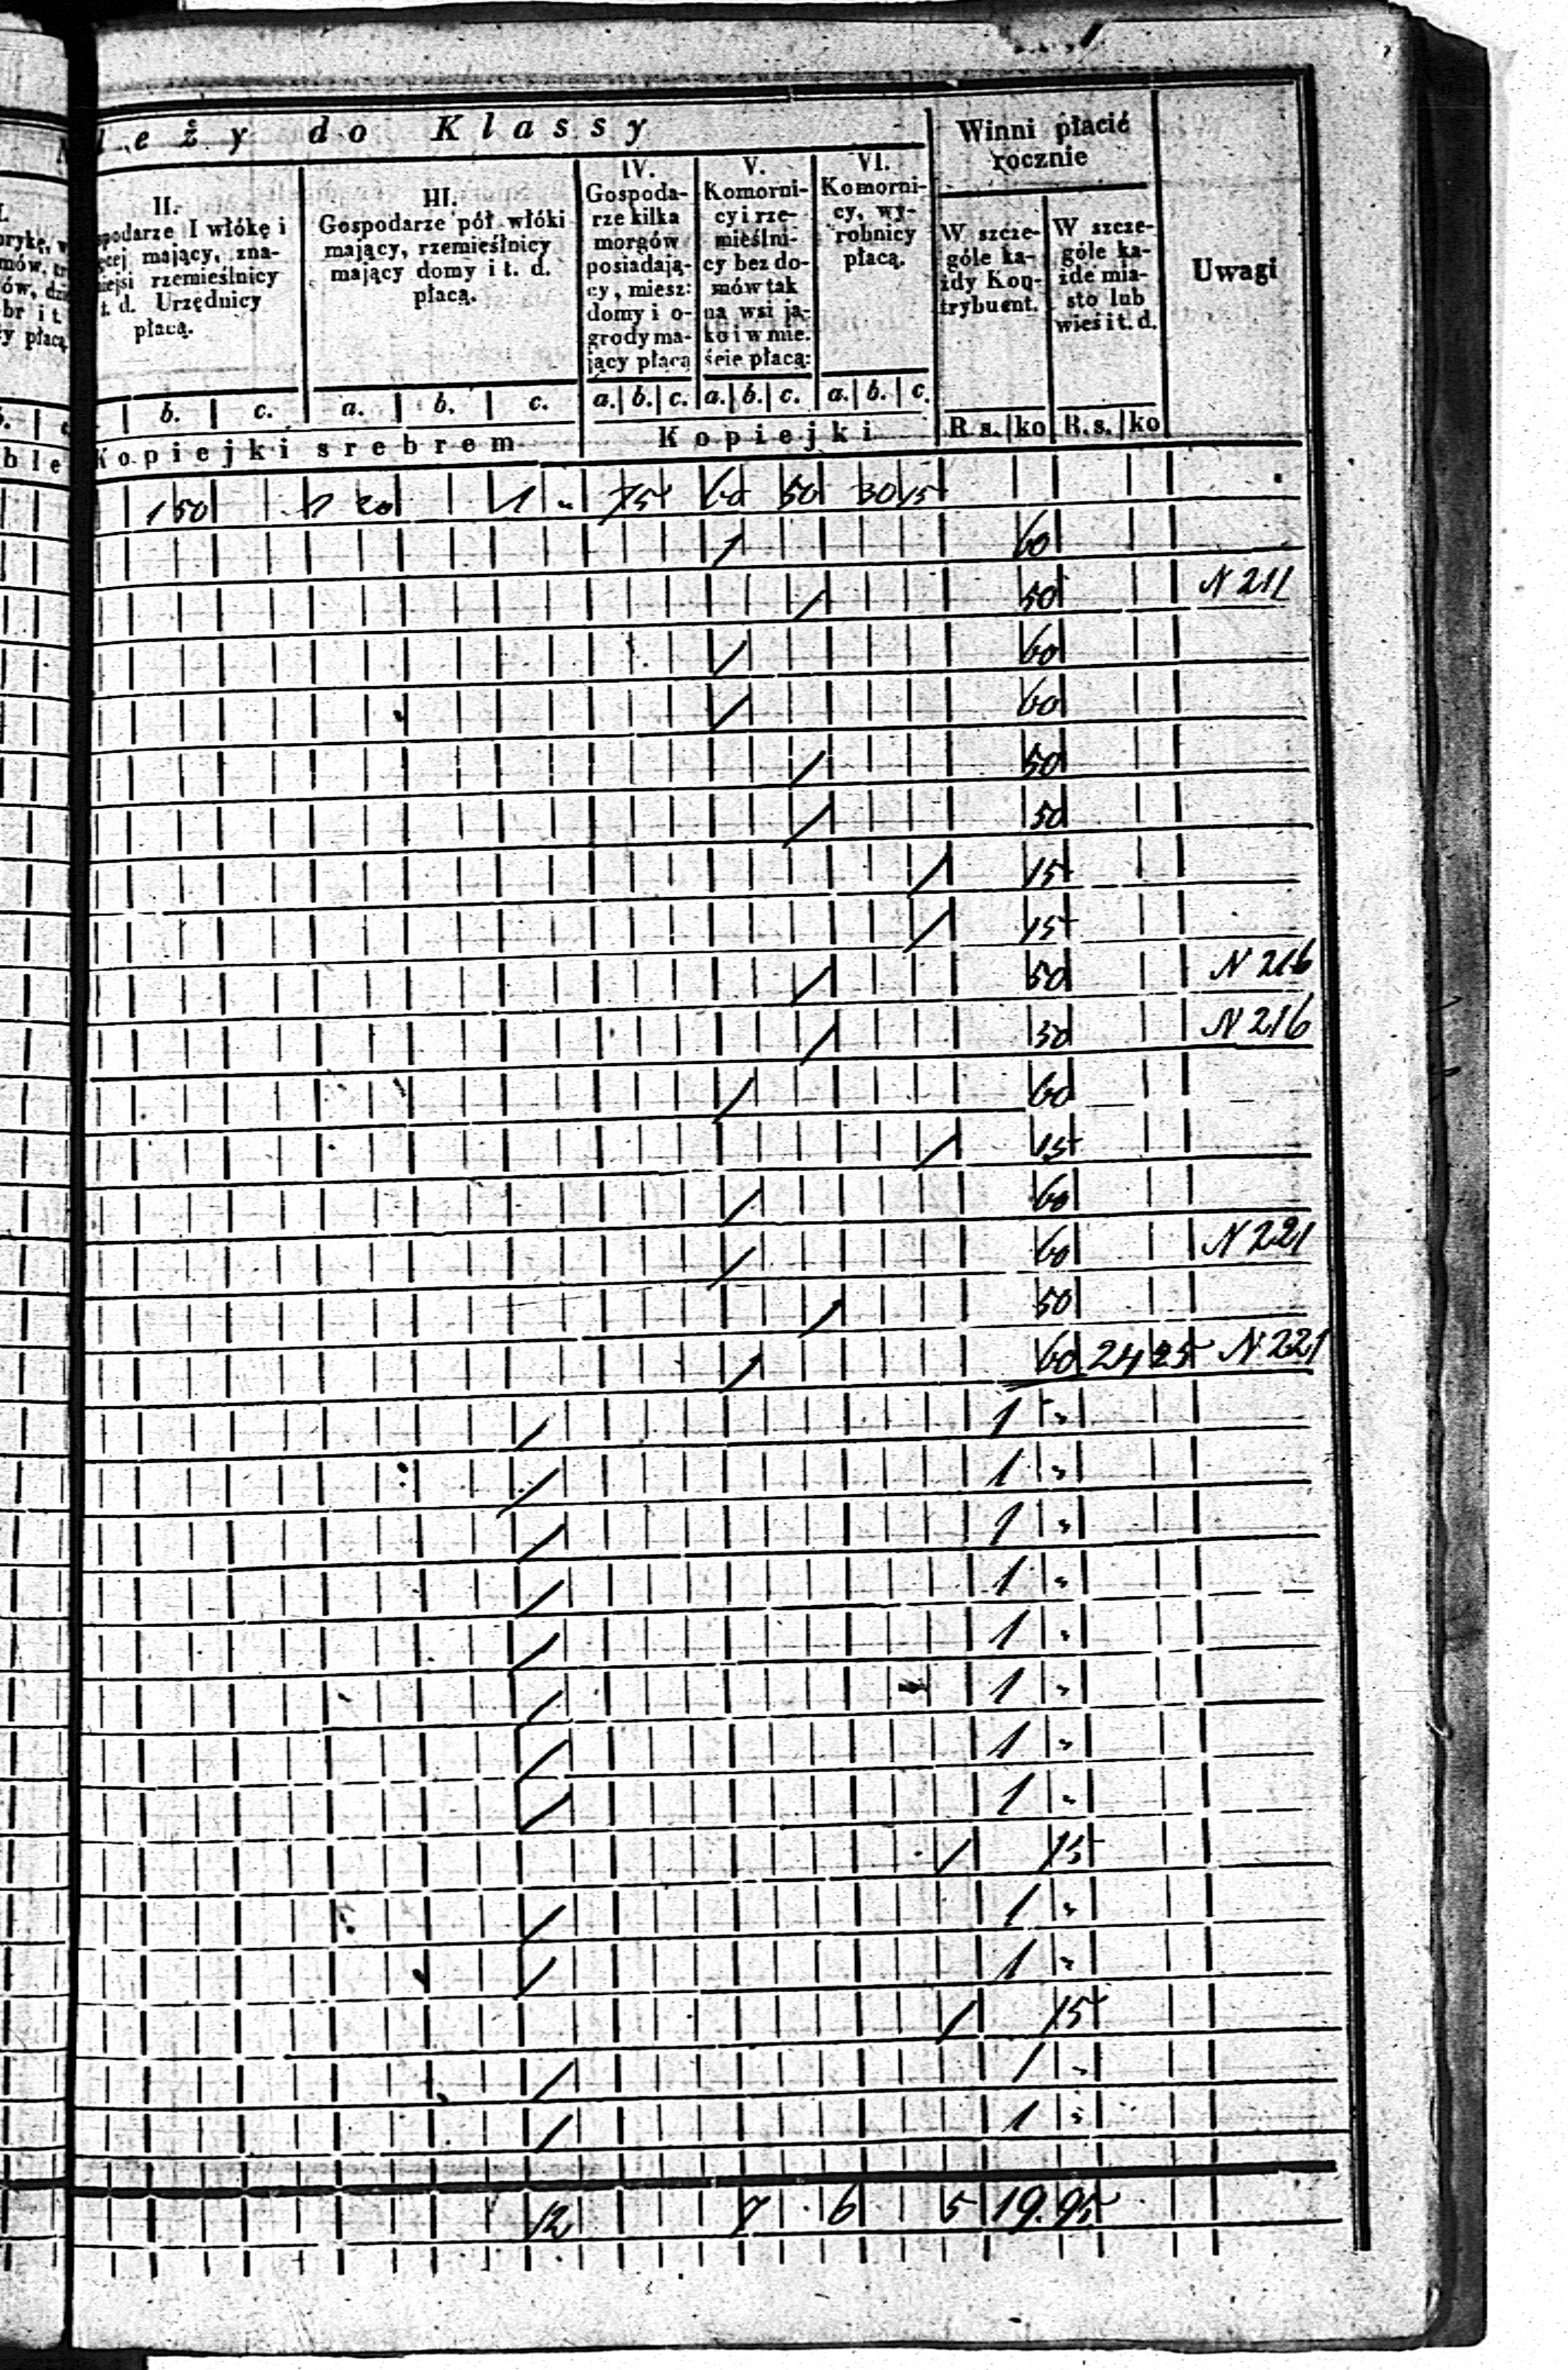 leży do Klassy
Winni płacić
rocznie
Uwagi
II.
podarze I włókę i
mający, zna-
rzemieślnicy
t. d. Urzędnicy
płacą.
III.
Gospodarze pół włóki
mający, rzemieślnicy
mający domy i t. d.
płacą.
IV.
Gospoda-
rze kilka
morgów
posiadają-
cy, miesz:
domy i o-
grody ma-
jący płacą
V.
Komorni-
cy i rze-
mieślni-
cy bez do-
mów tak
na wsi ja-
ko i w mie.
ście płacą:
VI.
Komorni-
cy, wy-
robnicy
płacą.
W szcze-
góle ka-
żdy Kon-
trybuent.
W szcze-
góle ka-
żde mia-
sto lub
wieś i t. d.
b. c. a. b. c. a. b. c. a. b. c. a. b. c.
R. s. ko R. s. ko
Kopiejki srebrem
Kopiejki
1 50 1 20 1 " 75 60 50 30 15
60
50 N 211
60
60
50
50
15
15
50 N 216
50 N 216
60
15
60
60 N 221
50
60 24 25 N 221
1 "
1 "
1 "
1 "
1 "
1 "
1 "
1 "
15
1 "
1 "
15
1 "
1 "
12 7 6 5 19.95